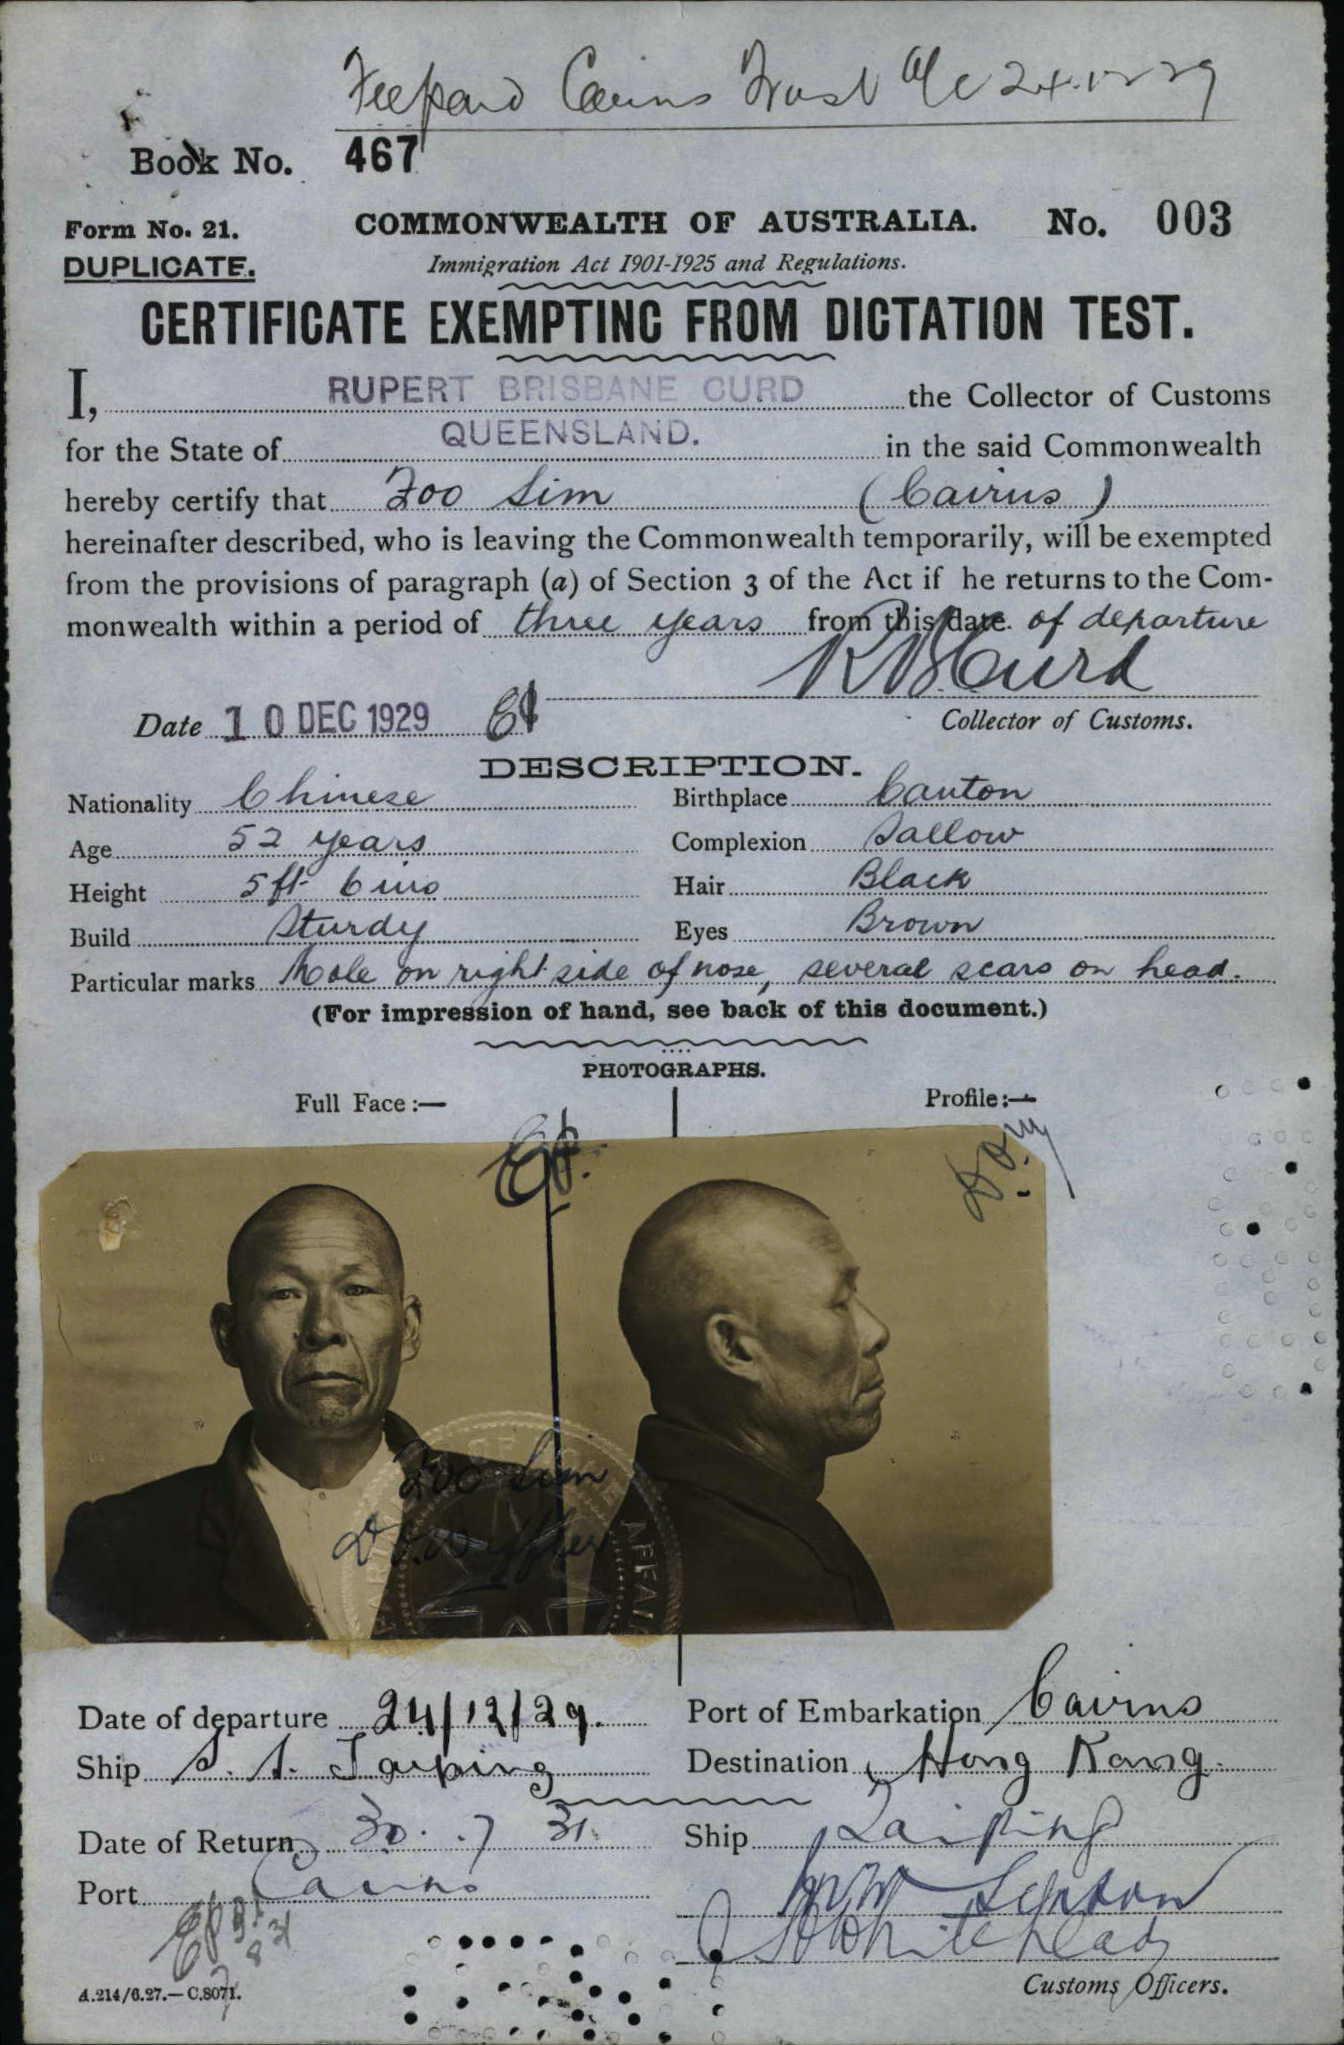 Fee paid Cairns Trust A/c 24.12.29
Book No. 467
Form No. 21. COMMONWEALTH OF AUSTRALIA. No. 003
DUPLICATE. Immigration Act 1901-1925 and Regulations.
CERTIFICATE EXEMPTING FROM DICTATION TEST.
I, RUPERT BRISBANE CURD the Collector of Customs
for the State of QUEENSLAND. in the said Commonwealth
hereby certify that Foo Sim (Cairns)
hereinafter described, who is leaving the Commonwealth temporarily, will be exempted
from the provisions of paragraph (a) of Section 3 of the Act if he returns to the Com-
monwealth within a period of three years from this date of departure
R B Curd
Date 10 DEC 1929 Collector of Customs.
DESCRIPTION.
Nationality Chinese Birthplace Canton
Age 52 years Complexion Sallow
Height 5ft 6ins Hair Black
Build Sturdy Eyes Brown
Particular marks Mole on right side of nose, several scars on head.
(For impression of hand, see back of this document.)
PHOTOGRAPHS.
Full Face:— Profile:—
Foo Sim
AFFAIRS
Date of departure 24/12/29. Port of Embarkation Cairns
Ship S. S. Taiping Destination Hong Kong.
Date of Return 30.7.31. Ship Taiping
Port Cairns
Whitehead
Customs Officers.
A.214/6.27.—C.8071.